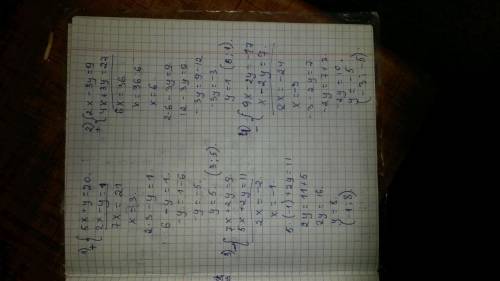 1) + { 5x + y = 20
2x - y = 1
7x = 21
x = 3.
2·3 - y = 1
6 - y = 1.
-y = 1-6.
-y = -5.
y = 5. (3;5).
2) + { 2x - 3y = 9
4x + 3y = 27
6x = 36
x = 36:6
x = 6
2·6 - 3y = 9
12 - 3y = 9
-3y = 9-12
-3y = -3
y = 1 (6;1).
3) - { 7x + 2y = 9
5x + 2y = 11
2x = -2
x = -1
5·(-1) + 2y = 11
2y = 11+5
2y = 16
y = 8
(-1:8)
4) - { 9x - 2y = -17
x - 2y = 7
x = -3
-3 - 2y = 7
-2y = 7+3
-2y = 10
y = -5
(-3:-5)